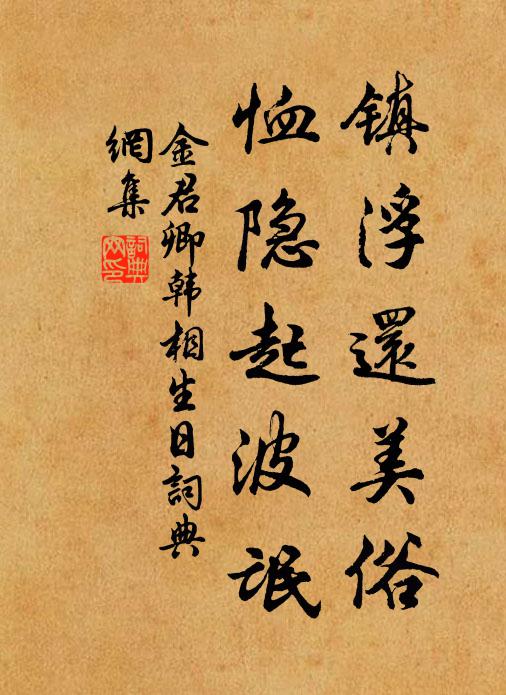 镇浮還美俗
恤隐起波氓
金君卿韩相生日詞典
網集
詞典
网印